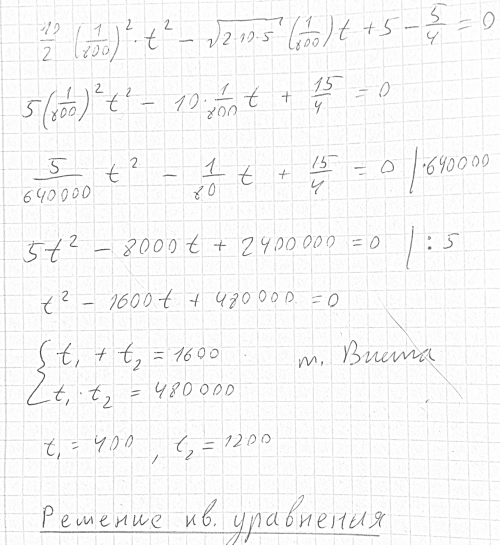 10/2 (1/800)² · t² − √(2·10·5) (1/800) t + 5 − 5/4 = 0
5(1/800)² t² − 10 · 1/800 t + 15/4 = 0
5/640000 t² − 1/80 t + 15/4 = 0 | ·640000
5t² − 8000t + 2400000 = 0 | : 5
t² − 1600t + 480000 = 0
{ t₁ + t₂ = 1600 т. Виета
t₁ · t₂ = 480000
t₁ = 400 , t₂ = 1200
Решение кв. уравнения